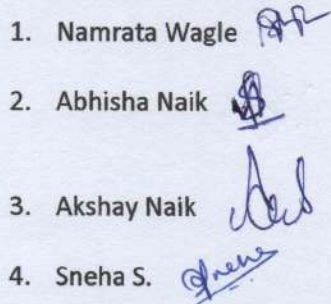 1. Namrata Wagle
2. Abhisha Naik
3. Akshay Naik
4. Sneha S. Sneha